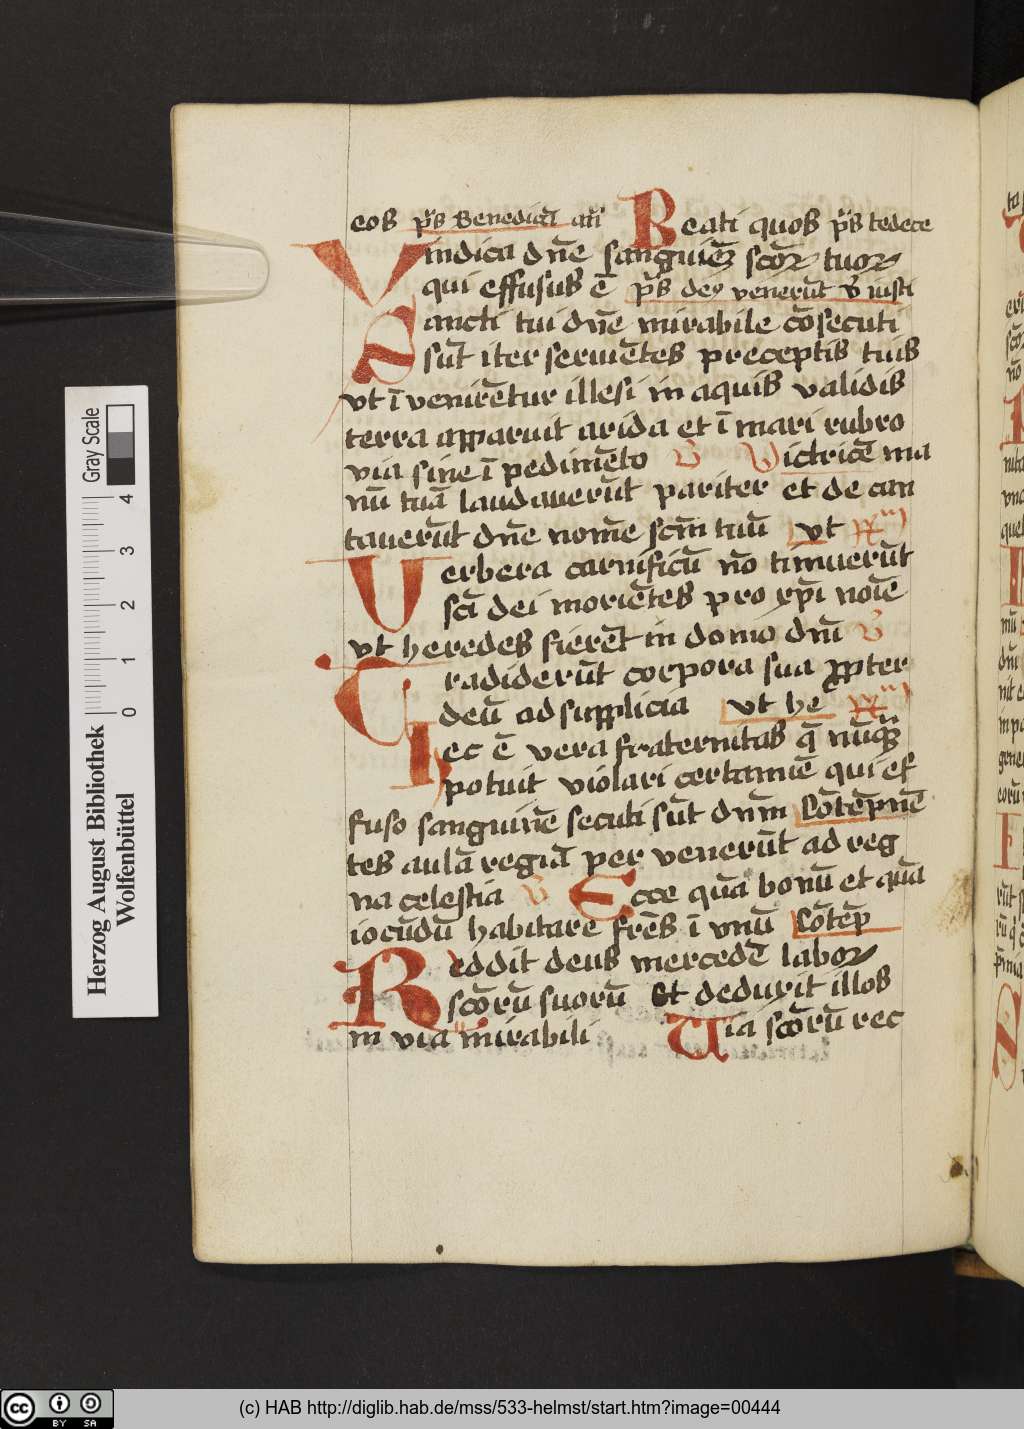 eos ps̄ Benedicā añ Beati quos ps̄ tedece
Vindica dn̄e sanguinē scōꝝ tuoꝝ
qui effusus ē ps̄ deꝰ venerūt v̄ iusti
Sancti tui dn̄e mirabile cōsecuti
sūt iter seruiētes preceptis tuis
vt īvenirētur illesi in aquis validis
terra apparuit arida et ī mari rubro
via sine īpedimēto V̄ Victricē ma
nū tuā laudauerūt pariter et de can
tauerūt dn̄e nomē scm̄ tuū vt
Verbera carnificū nō timuerūt
scī dei moriētes pro xp̄i noīe
vt heredes fierēt in domo dnī V̄
Tradiderūt corpora sua ꝓpter
deū ad supplicia vt he
Hec ē vera fraternitas q̄ nūqᷓ
potuit violari certamīe qui ef
fuso sanguinē secuti sūt dnm̄ Cōtēpnē
tes aulā regiā per venerūt ad reg
na celestia V̄ Ecce quā bonū et quā
iocūdū habitare frēs ī vnū Cōtēp̄
Reddit deus mercedē laboꝝ
scōrū suorū Et deduxit illos
in via mirabili Via scōrū rec
Gray Scale
0 1 2 3 4
Herzog August Bibliothek
Wolfenbüttel
(c) HAB http://diglib.hab.de/mss/533-helmst/start.htm?image=00444
cc BY SA